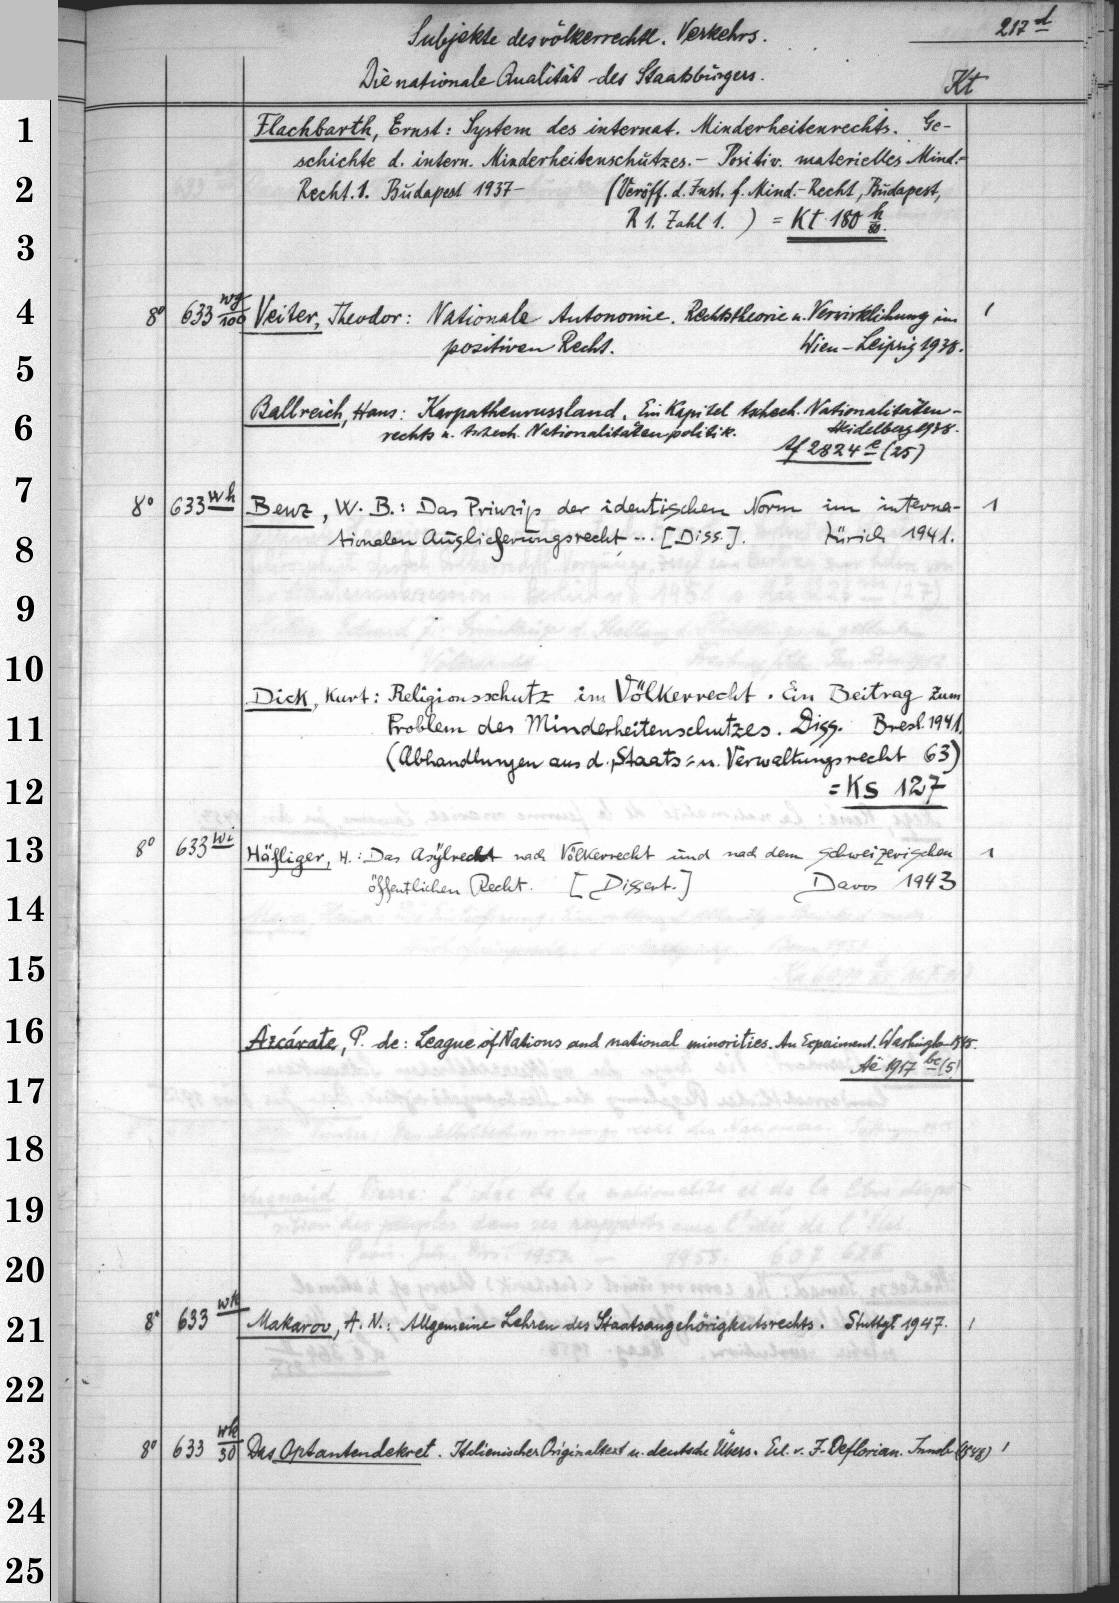 217 d
Subjekte des völkerrechtl. Verkehrs.
Die nationale Qualität des Staatsbürgers.
Kt
1
Flachbarth, Ernst: System des internat. Minderheitenrechts. Ge-
schichte d. intern. Minderheitenschutzes. – Positiv. materielles Mind.-
2
Recht. 1. Budapest 1937– (Veröff. d. Inst. f. Mind.-Recht, Budapest,
R 1. Zahl 1. ) = Kt 180 h/80.
3
4
8° 633 wg/100 Veiter, Theodor: Nationale Autonomie. Rechtstheorie u. Verwirklichung im 1
positiven Recht. Wien–Leipzig 1938.
5
6
Ballreich, Hans: Karpathenrussland. Ein Kapitel tschech. Nationalitäten-
rechts u. tschech. Nationalitätenpolitik. Heidelberg 1938.
Af 2824 e (25)
7
8° 633 wh Benz, W. B.: Das Prinzip der identischen Norm im interna- 1
8
tionalen Auslieferungsrecht ... [Diss.]. Zürich 1941.
9
10
Dick, Kurt: Religionsschutz im Völkerrecht. Ein Beitrag zum
11
Problem des Minderheitenschutzes. Diss. Bresl. 1941.
(Abhandlungen aus d. Staats- u. Verwaltungsrecht 63)
12
= Ks 127
13
8° 633 wi Häfliger, H.: Das Asylrecht nach Völkerrecht und nach dem schweizerischen 1
öffentlichen Recht. [Dissert.] Davos 1943
14
15
16
Azcárate, P. de: League of Nations and national minorities. An Experiment. Washington 1945.
Aë 1917 bc (5)
17
18
19
20
21
8° 633 wk Makarov, A. N.: Allgemeine Lehren des Staatsangehörigkeitsrechts. Stuttgt 1947. 1
22
23
8° 633 wk/50 Das Optantendekret. Italienischer Originaltext u. deutsche Übers. Ed. v. J. Deflorian. Innsb (1948) 1
24
25